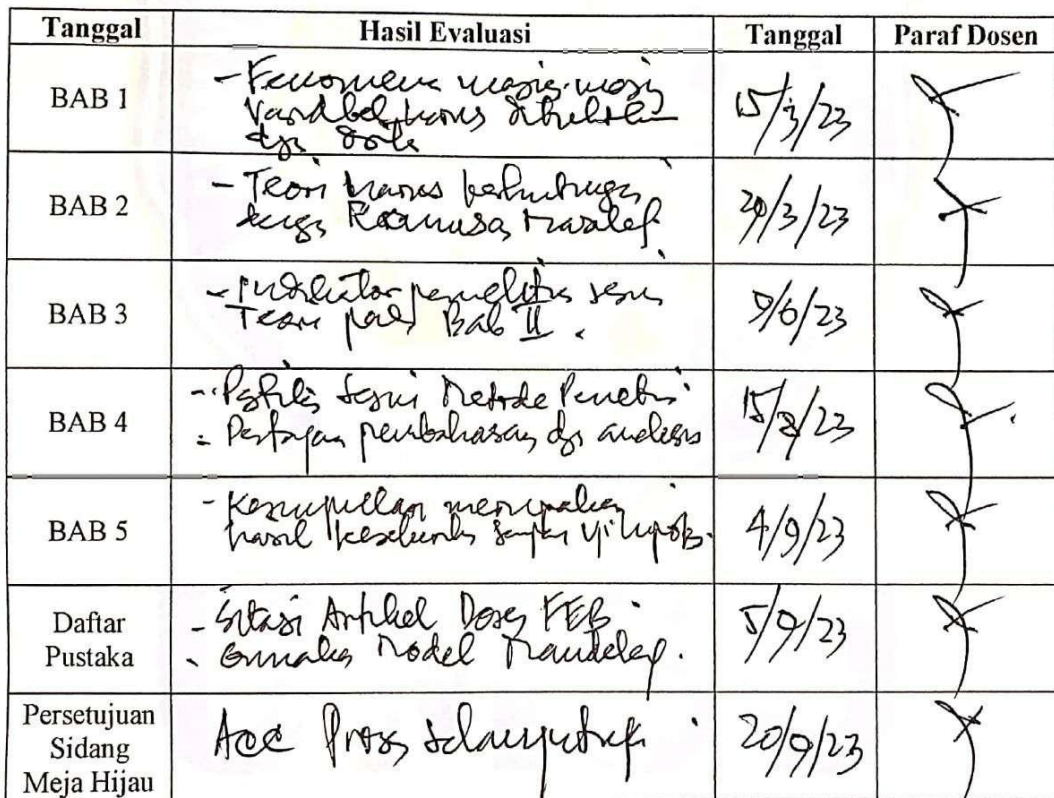 Tanggal Hasil Evaluasi Tanggal Paraf Dosen
BAB 1
- Fenomena masing-masing
Variabel harus dibuktikan
dgn data
15/3/23
BAB 2
- Teori harus berhubungan
dengan Rumusan masalah
29/3/23
BAB 3
- Indikator penelitian sesuai
Teori pada Bab II.
9/6/23
BAB 4
sesuai Metode Penelitian
- pembahasan dgn analisis
15/8/23
BAB 5
- Kesimpulan merupakan
hasil keseluruhan sampai uji hipotesis.
4/9/23
Daftar
Pustaka
- Sitasi Artikel Dosen FEB
- Gunakan Model Mendeley.
5/9/23
Persetujuan
Sidang
Meja Hijau
Acc Proses Selanjutnya
20/9/23